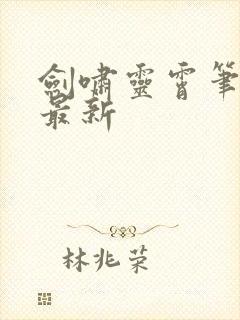 劍嘯靈霄筆
最新
林兆荣